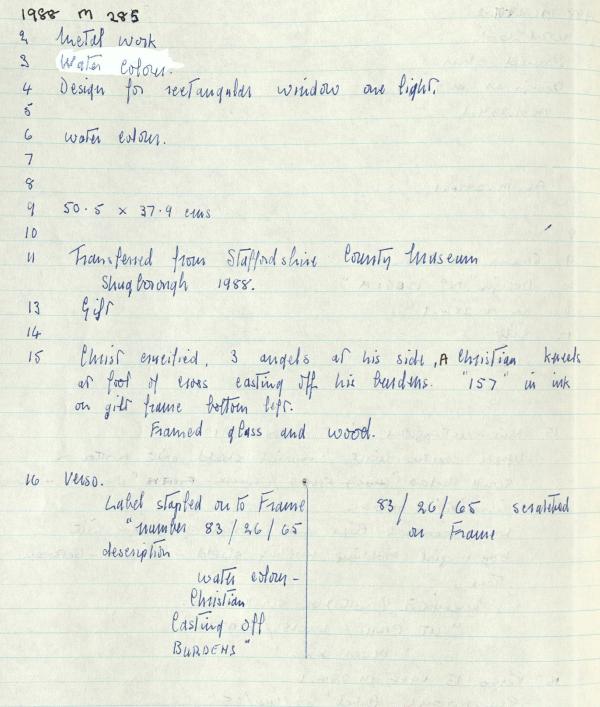 1988 M 285
2 Metal work
3 Water colour.
4 Design for rectangular window one light.
5
6 water colour.
7
8
9 50.5 x 37.9 cms
10
11 Transferred from Staffordshire County Museum
Shugborough 1988.
13 Gift
14
15 Christ crucified, 3 angels at his side, A Christian kneels
at foot of cross casting off his burdens. "157" in ink
on gilt frame bottom left.
Framed glass and wood.
16 Verso.
Label stapled on to Frame
"number 83/26/65
description
water colour -
Christian
Casting off
BURDENS"
83/26/65 scratched
on Frame